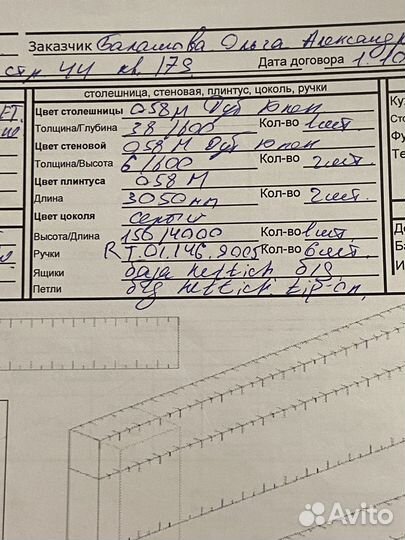 Заказчик Балашова Ольга Александр
стр. 44 кв. 173 Дата договора 1.10
столешница, стеновая, плинтус, цоколь, ручки
Цвет столешницы 058М Дуб Юкон
Толщина/Глубина 38/600 Кол-во 1шт.
Цвет стеновой 058М Дуб Юкон
Толщина/Высота 6/600 Кол-во 2шт.
Цвет плинтуса 058М
Длина 3050мм Кол-во 2шт.
Цвет цоколя
Высота/Длина 150/4000 Кол-во 1шт.
Ручки RT.01.146.9005 Кол-во 6шт.
Ящики hettich б/д
Петли б/д hettich, tip-on,
Ку
Сто
Фу
Те
До
Ба
И
Avito